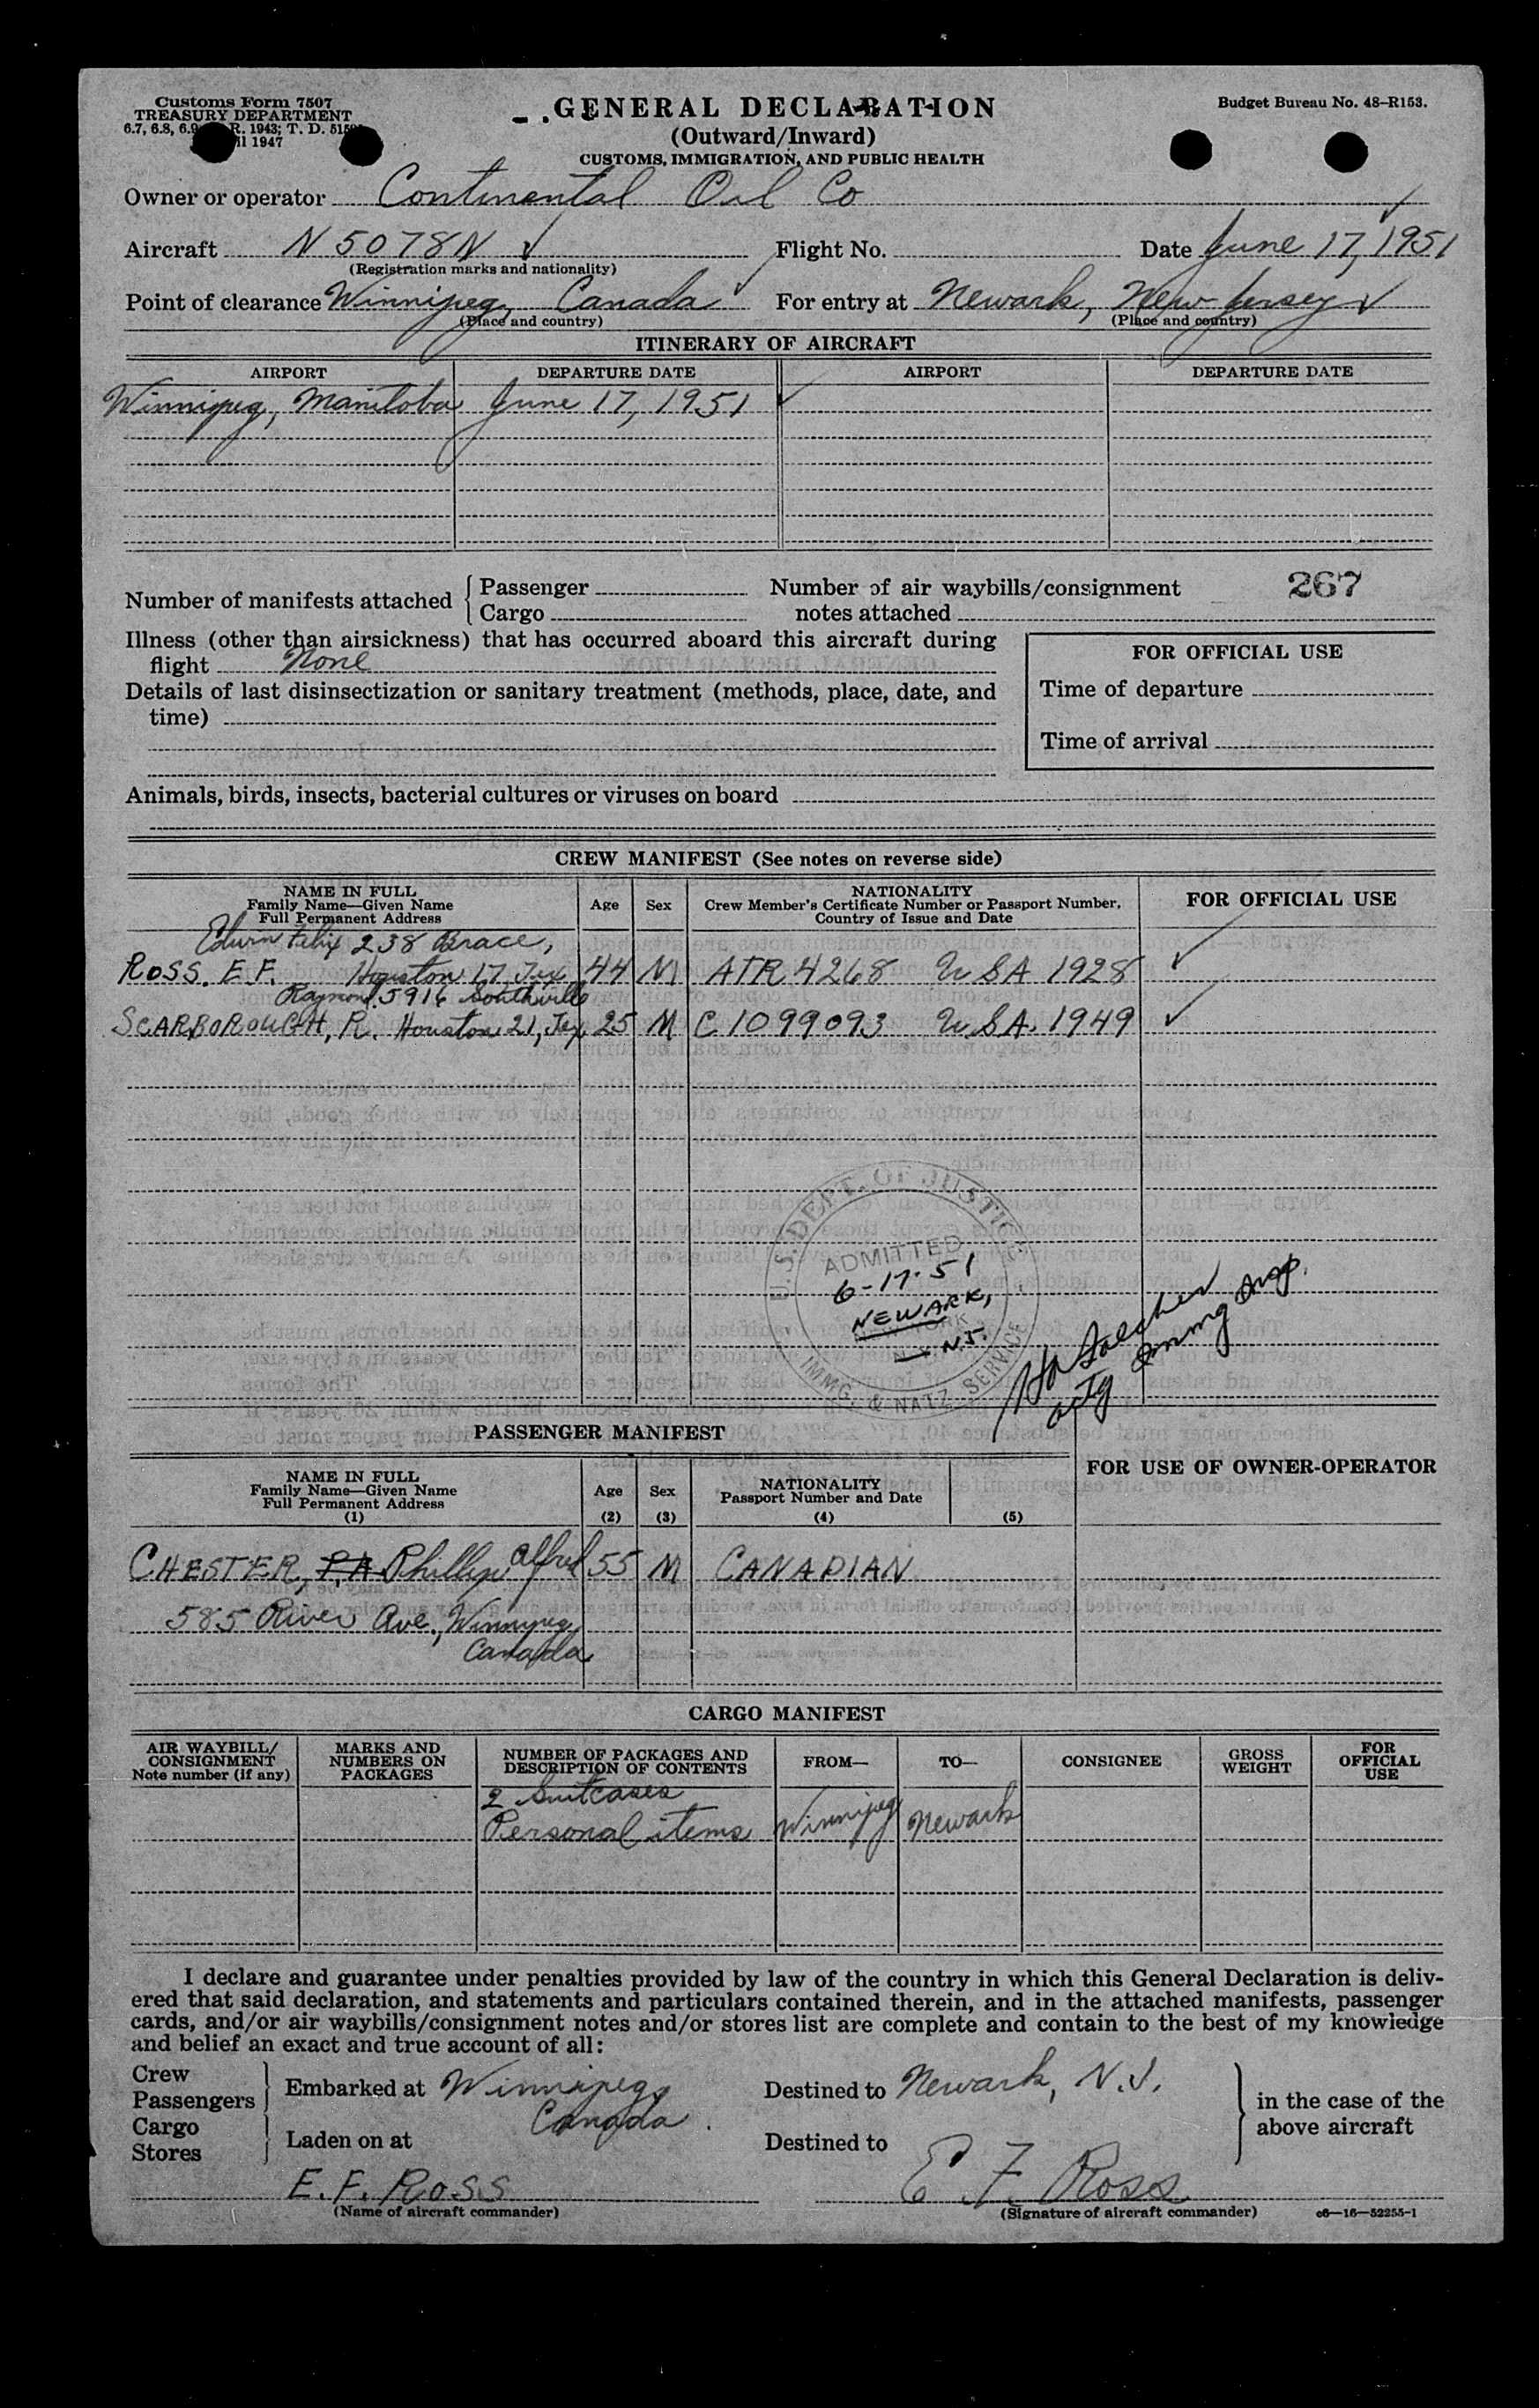 Customs Form 7507
TREASURY DEPARTMENT
6.7, 6.8, 6.9 R. 1943; T. D.
1947
GENERAL DECLARATION
(Outward/Inward)
CUSTOMS, IMMIGRATION, AND PUBLIC HEALTH
Budget Bureau No. 48–R153.
Owner or operator Continental Oil Co
Aircraft N 5078N Flight No. Date June 17, 1951
(Registration marks and nationality)
Point of clearance Winnipeg, Canada For entry at Newark, New Jersey
(Place and country) (Place and country)
ITINERARY OF AIRCRAFT
AIRPORT DEPARTURE DATE AIRPORT DEPARTURE DATE
Winnipeg, Manitoba June 17, 1951
Number of manifests attached { Passenger
Cargo
Number of air waybills/consignment
notes attached
267
Illness (other than airsickness) that has occurred aboard this aircraft during
flight None
Details of last disinsectization or sanitary treatment (methods, place, date, and
time)
FOR OFFICIAL USE
Time of departure
Time of arrival
Animals, birds, insects, bacterial cultures or viruses on board
CREW MANIFEST (See notes on reverse side)
NAME IN FULL
Family Name—Given Name
Full Permanent Address
Age
Sex
NATIONALITY
Crew Member's Certificate Number or Passport Number,
Country of Issue and Date
FOR OFFICIAL USE
Edwin Felix 238 Brace,
ROSS. E. F. Houston 17, Tex 44 M ATR 4268 USA 1928
5916 Southville
SCARBOROUGH, R. Houston 21, Tex 25 M C 1099093 U.S.A. 1949
U.S. DEPT. OF JUSTICE
ADMITTED
6-17-51
NEWARK,
N.J.
IMMIG. & NATZ. SERVICE
actg Immig Insp.
PASSENGER MANIFEST
NAME IN FULL
Family Name—Given Name
Full Permanent Address
(1)
Age
(2)
Sex
(3)
NATIONALITY
Passport Number and Date
(4)
(5)
FOR USE OF OWNER-OPERATOR
CHESTER, P.A. Phillip Alfred 55 M CANADIAN
585 River Ave., Winnipeg,
Canada
CARGO MANIFEST
AIR WAYBILL/
CONSIGNMENT
Note number (if any)
MARKS AND
NUMBERS ON
PACKAGES
NUMBER OF PACKAGES AND
DESCRIPTION OF CONTENTS
FROM—
TO—
CONSIGNEE
GROSS
WEIGHT
FOR
OFFICIAL
USE
2 Suitcases
Personal items Winnipeg Newark
I declare and guarantee under penalties provided by law of the country in which this General Declaration is deliv-
ered that said declaration, and statements and particulars contained therein, and in the attached manifests, passenger
cards, and/or air waybills/consignment notes and/or stores list are complete and contain to the best of my knowledge
and belief an exact and true account of all:
Crew
Passengers
Cargo
Stores
Embarked at Winnipeg,
Canada.
Laden on at
Destined to Newark, N.J.
Destined to
in the case of the
above aircraft
E. F. ROSS
(Name of aircraft commander)
E F. Ross
(Signature of aircraft commander)
c6—16—52255-1